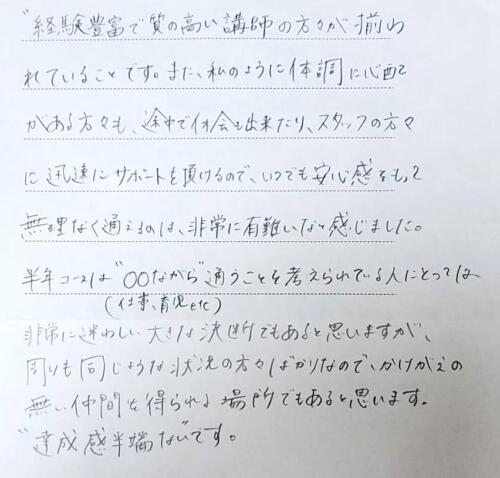 "経験豊富で質の高い講師の方々が揃わ
れていることです。また、私のように体調に心配
がある方々も、途中で休会も出来たり、スタッフの方々
に迅速にサポートを頂けるので、いつでも安心感をもって
無理なく通えるのは、非常に有難いなと感じました。
半年コースは"〇〇ながら"通うことを考えられている人にとっては
(仕事、育児etc)
非常に迷わしい大きな決断でもあると思いますが、
周りも同じような状況の方々ばかりなので、かけがえの
無い仲間を得られる場所でもあると思います。
"達成感半端ない"です。